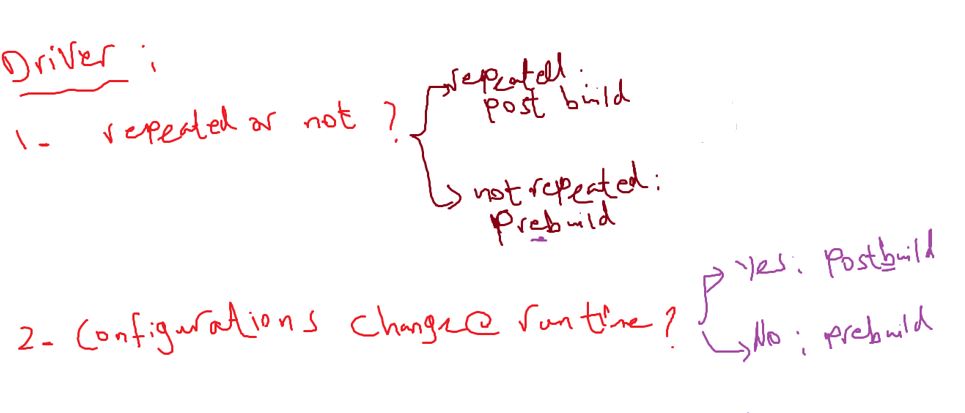 Driver :
1- repeated or not ?
repeated :
post build
not repeated :
Prebuild
2- Configurations change@ runtime ?
Yes : Postbuild
No : prebuild